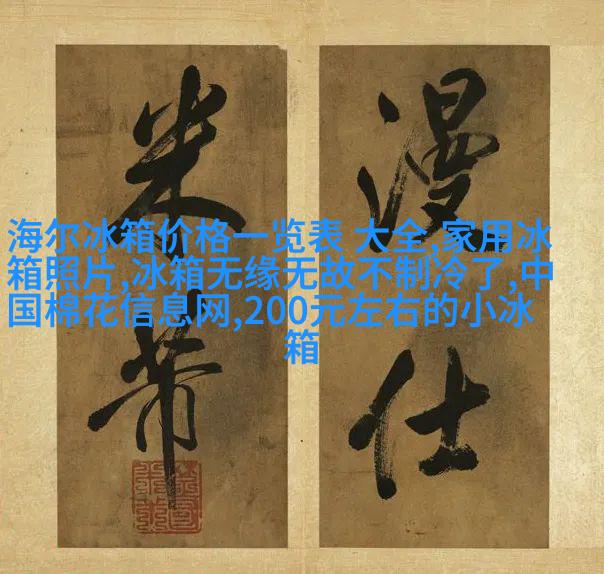 漫仕
米芾
海尔冰箱价格一览表 大全,家用冰
箱照片,冰箱无缘无故不制冷了,中
国棉花信息网,200元左右的小冰
箱